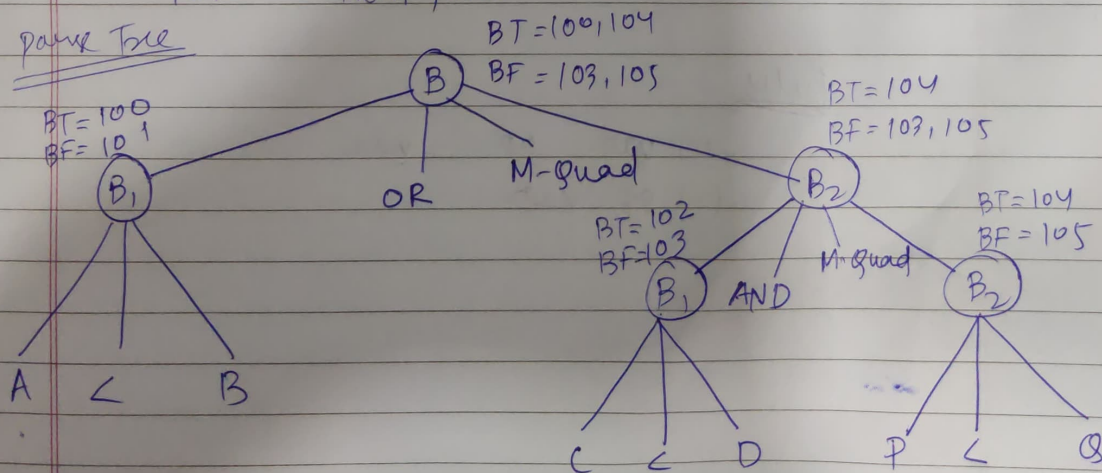 Parse Tree
BT=100,104
BF=103,105
B
BT=100
BF=101
B1
OR
M-Quad
BT=104
BF=103,105
B2
BT=102
BF=103
B1
AND
M-Quad
BT=104
BF=105
B2
A < B
C < D
P < Q